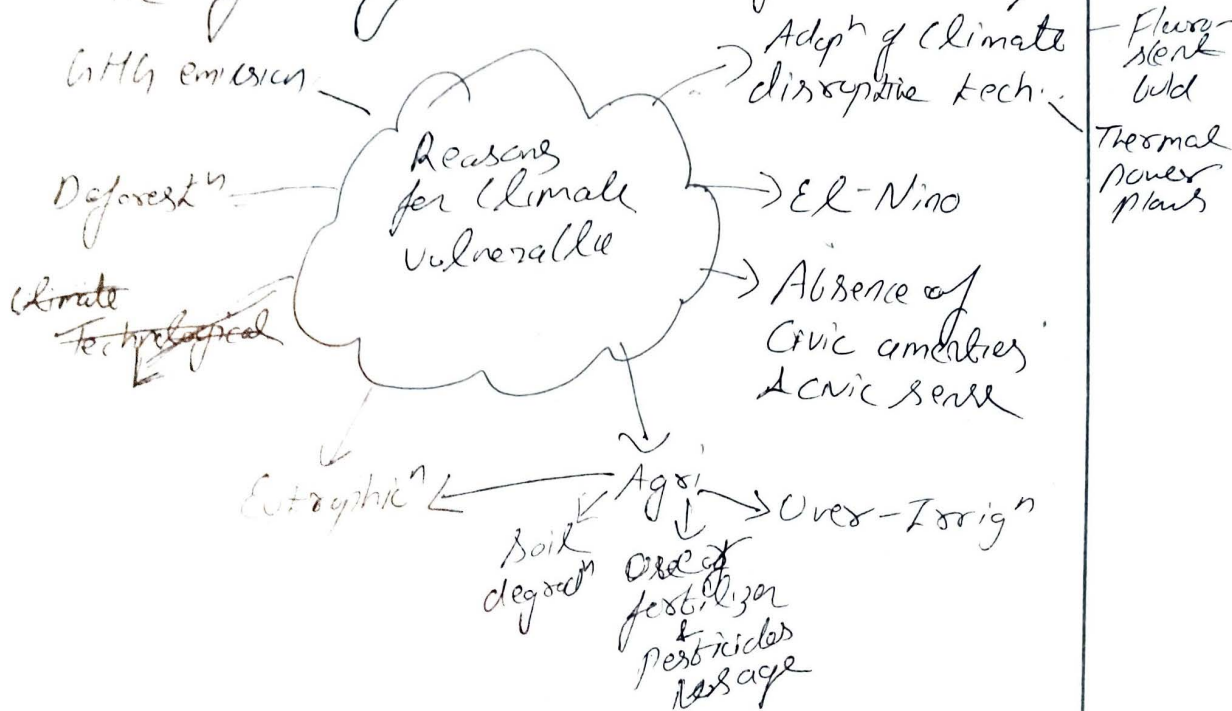 GHG emission
Deforestⁿ
Climate
Technological
Reasons
for Climate
vulnerable
Adopⁿ of Climate
disruptive tech.
Fluro-
scent
bulb
Thermal
power
plants
El-Nino
Absence of
Civic amenties
& Civic sense
Eutrophicⁿ
Agri
Over-Irrigⁿ
Soil
degradⁿ
Use of
fertilizer
&
Pesticides